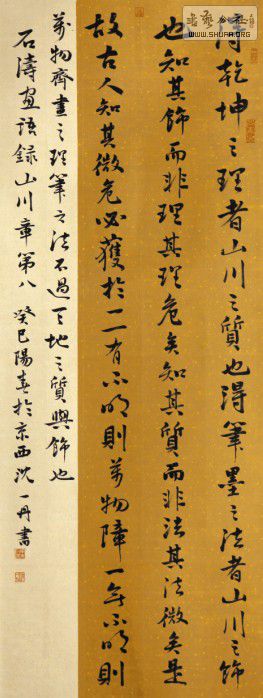 書藝公社
WWW.SHUFA.ORG
得乾坤之理者山川之質也得筆墨之法者山川之飾
也知其飾而非理其理危矣知其質而非法其法微矣是
故古人知其微危必獲於一一有不明則萬物障一無不明則
萬物齊畫之理筆之法不過天地之質與飾也
石濤畫語錄山川章第八 癸巳陽春於京西沈一丹書